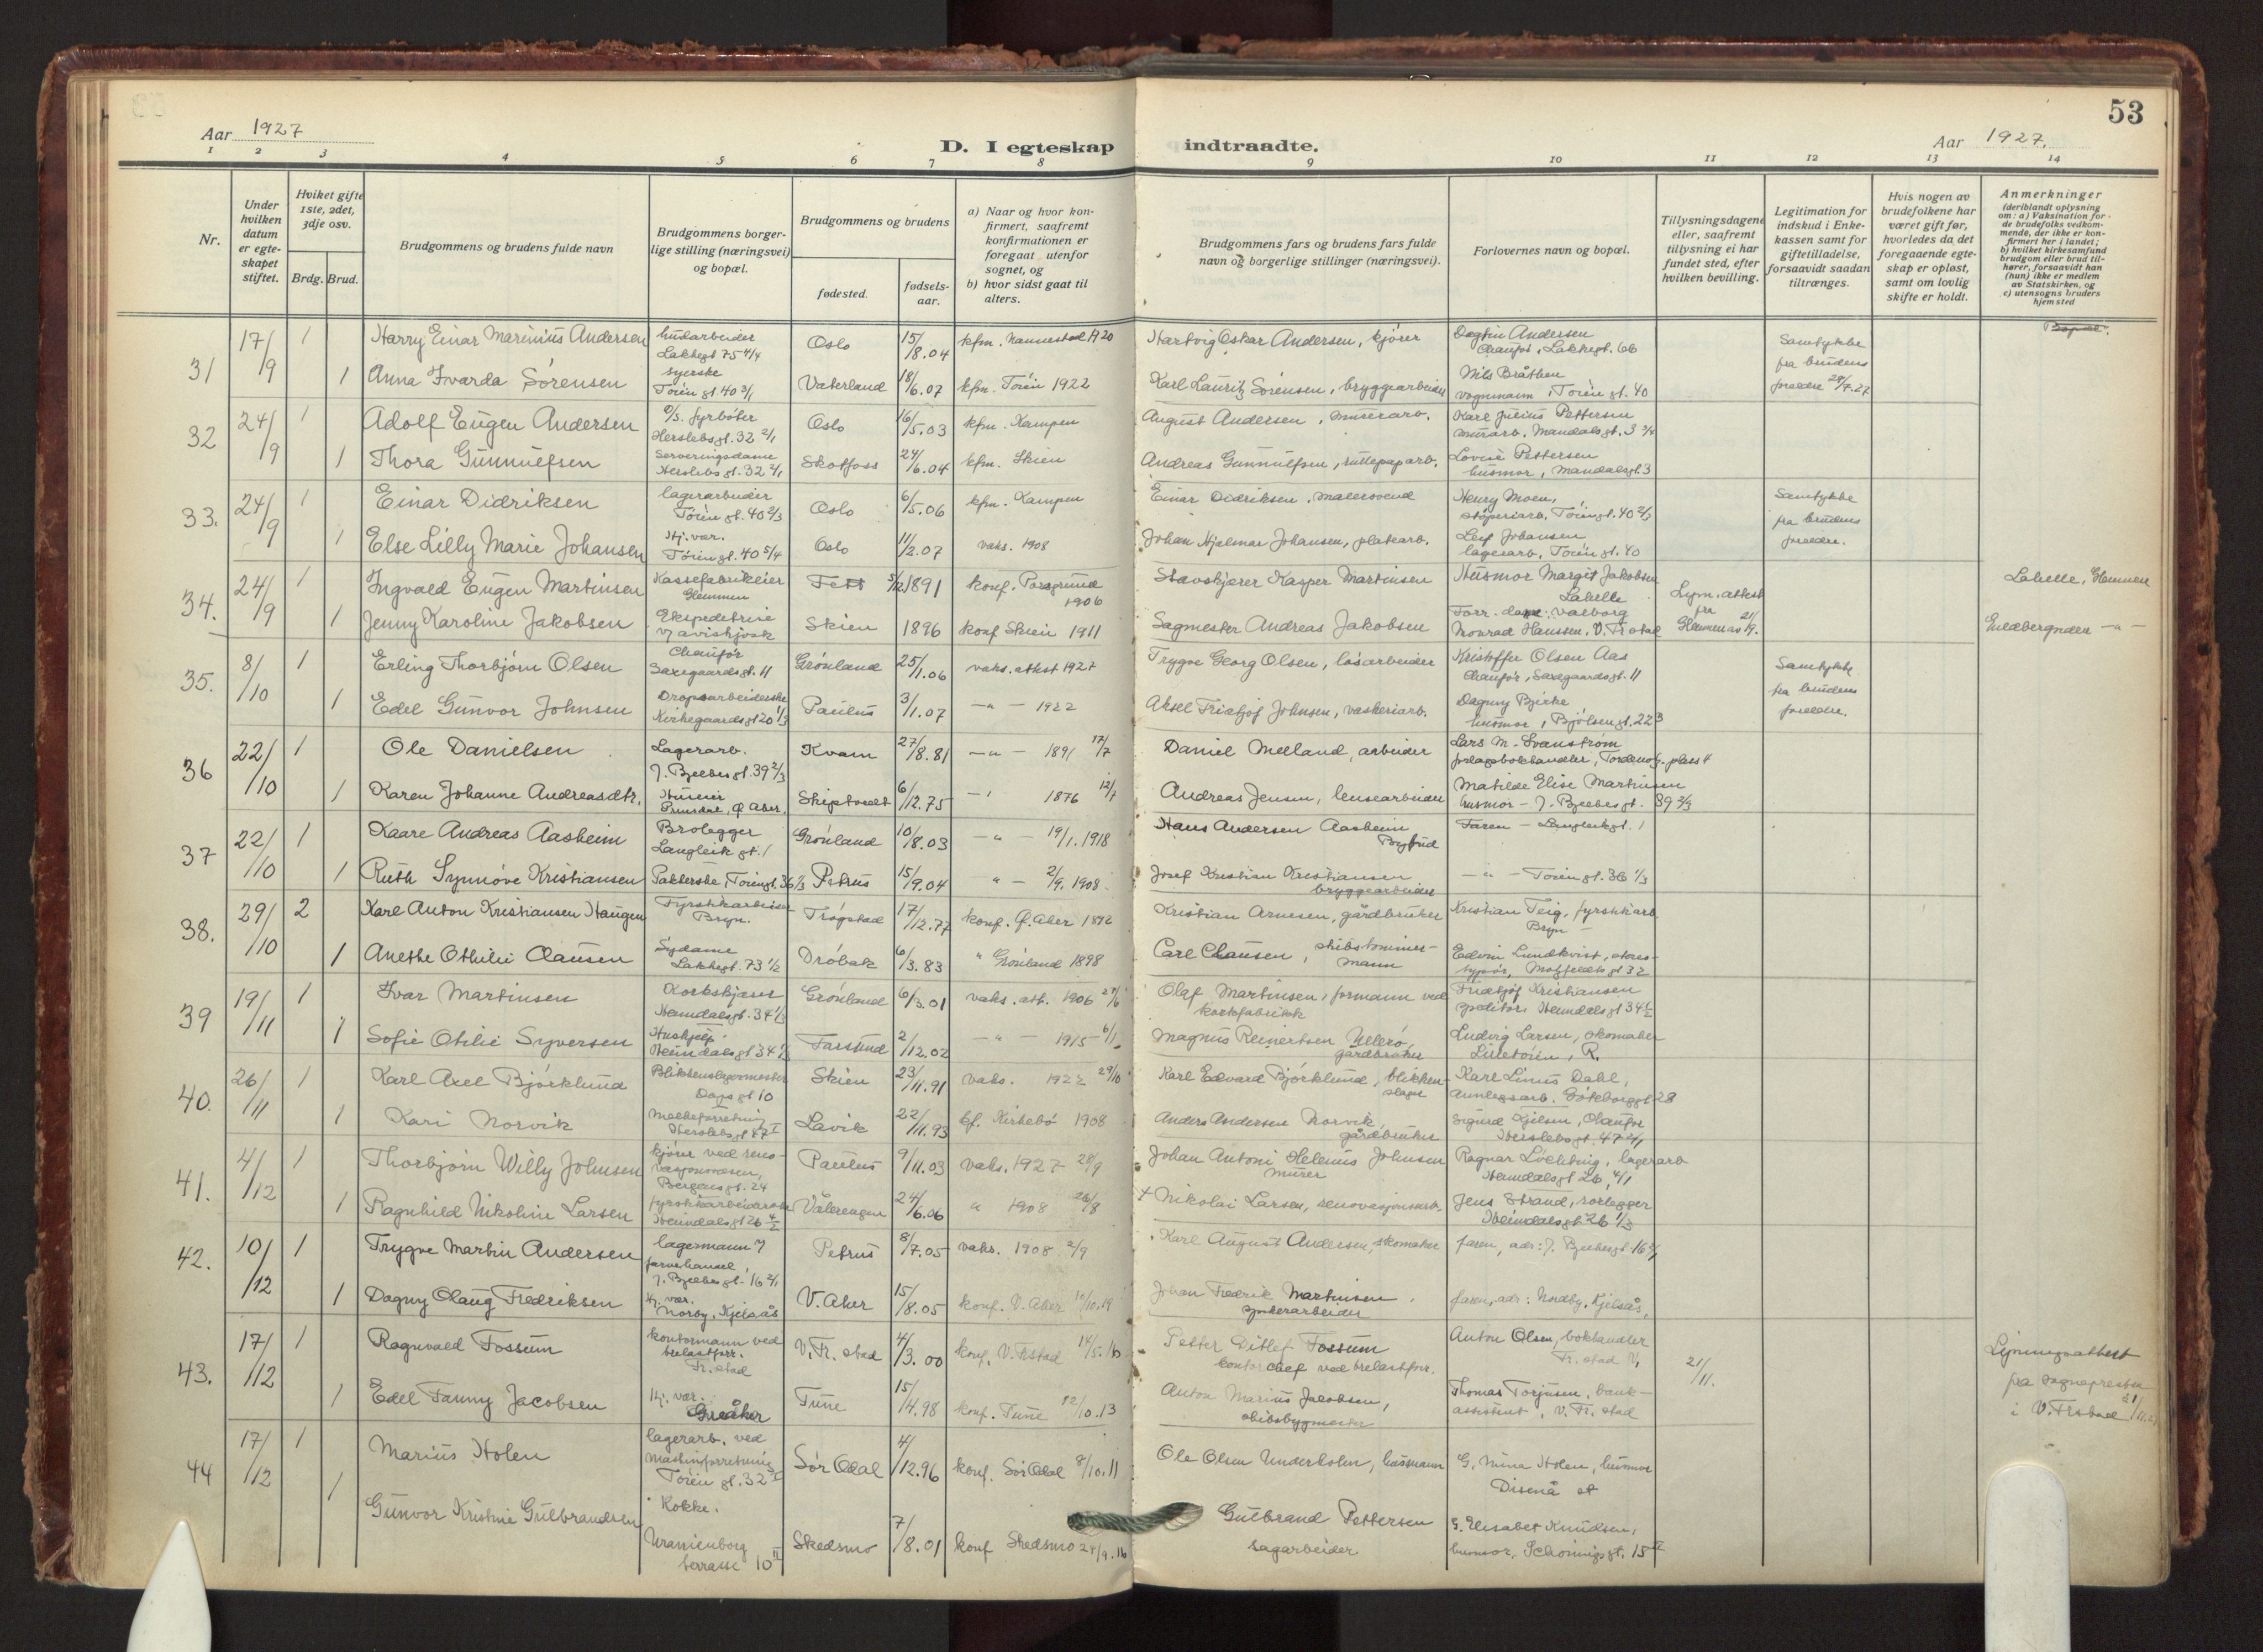 53
Aar 1927
D. I egteskap indtraadte.
Aar 1927.
1 2 3 4 5 6 7 8 9 10 11 12 13 14
Nr.
Under hvilken datum er egte-skapet stiftet.
Hviket gifte 1ste, 2det, 3dje osv.
Brdg. Brud.
Brudgommens og brudens fulde navn
Brudgommens borger-lige stilling (næringsvei) og bopæl.
Brudgommens og brudens
fødested.
fødsels-aar.
a) Naar og hvor kon-firmert, saafremt konfirmationen er foregaat utenfor sognet, og
b) hvor sidst gaat til alters.
Brudgommens fars og brudens fars fulde navn og borgerlige stillinger (næringsvei).
Forlovernes navn og bopæl.
Tillysningsdagene eller, saafremt tillysning ei har fundet sted, efter hvilken bevilling.
Legitimation for indskud i Enke-kassen samt for giftetilladelse, forsaavidt saadan tiltrænges.
Hvis nogen av brudefolkene har været gift før, hvorledes da det foregaaende egte-skap er opløst, samt om lovlig skifte er holdt.
Anmerkninger
(deriblandt oplysning om: a) Vaksination for de brudefolks vedkom-mende, der ikke er kon-firmert her i landet; b) hvilket kirkesamfund brudgom eller brud til-hører, forsaavidt han (hun) ikke er medlem av Statskirken, og c) utensogns bruders hjemsted
31 17/9 1 Harry Einar Marinius Andersen Lakkegt 75 4/4 Oslo 15/8.04 kfm. Nannestad 1920 Hartvig Oskar Andersen, kjører Dagfin Andersen Chaufør, Lakkegt. 66 Samtykke fra brudens foreldre
1 Anna Ivarda Sørensen syerske Tøien gt. 40 3/1 Vaterland 18/6.07 kfm. Tøien 1922 Karl Lauritz Sørensen, bryggearbeider Nils Bråthen vognmann, Tøien gt. 40
32 24/9 1 Adolf Eugen Andersen fyrbøter Herslebsgt. 32 2/1 Oslo 16/5.03 kfm. Kampen August Andersen, murerarb. Karl Julius Pettersen murarb. Mandalsgt. 3
1 Thora Gunnulfsen Serveringsdame Herslebsgt. 32 2/1 Skotfoss 24/6.04 kfm. Skien Andreas Gunnulfsen, Lovise Pettersen husmor, Mandalsgt. 3
33. 24/9 1 Einar Didriksen lagerarbeider Tøien gt. 40 2/3 Oslo 6/5.06 kfm. Kampen Einar Didriksen, malersvend Henry Moen, støperiarb. Tøiengt. 40 2/3 Samtykke fra brudens foreldre.
1 Else Lilly Marie Johansen Hj. vær. Tøiengt. 40 5/4 Oslo 11/2.07 vaks. 1908 Johan Hjalmar Johansen, platearb. Leif Johansen lagerarb. Tøien gt. 40
34. 24/9 1 Ingvald Eugen Martinsen Kassefabrikeier Glemmen 5/12 1891 konf. Porsgrund 1906 Kasper Martinsen Husmor Margit Jakobsen Labelle Lysn. attest fra Glemmen av 21/9. Labelle, Glemmen
1 Jenny Karoline Jakobsen Ekspeditrise Skien 1896 konf Skien 1911 Sagmester Andreas Jakobsen Valborg Monrad Hanssen, V. Fr.stad —"—
35. 8/10 1 Erling Thorbjørn Olsen Chaufør Saxegaardsgt. 11 Grønland 25/1.06 vaks. attest 1927 Trygve Georg Olsen, løsarbeider Kristoffer Olsen Aas Chaufør, Saxegaardsgt. 11 Samtykke fra brudens foreldre.
1 Edel Gunvor Johnsen Dropsarbeiderske Kirkegaardsgt 20 1/3 Paulus 3/1.07 —"— 1922 Aksel Fridtjof Johnsen, vaskeriarb. Dagny Bjerke husmor, Bjølsengt. 22 3
36 22/10 1 Ole Danielsen Lagerarb. J. Bjelkesgt. 39 2/3 Kvam 27/8.81 —"— 1891 17/7 Daniel Melland, arbeider Lars M. Svanstrøm Tordensk. plass 4
1 Karen Johanne Andreasdtr. Ø. Aker. Skiptvedt 6/12.75 —"— 1876 12/7 Andreas Jensen, lensearbeider Matilde Elise Martinsen husmor — J. Bjelkesgt. 39 2/3
37 22/10 1 Kaare Andreas Aasheim Brolegger Langleik gt. 1 Grønland 10/8.03 —"— 19/1. 1918 Hans Andersen Aasheim Faren — Langleikgt. 1
1 Ruth Synnøve Kristiansen Pakkerske, Tøiengt. 36 1/3 Petrus 15/9.04 "— 2/9. 1908. Josef Kristian Kristiansen bryggearbeider —"— Tøien gt. 36 1/3
38. 29/10 2 Karl Anton Kristiansen Haugen Fyrstikkarbeider Bryn. Trøgstad 17/12.77 konf. Ø. Aker 1892 Kristian Arnesen, gårdbruker Kristian Teig, fyrstikkarb. Bryn —
1 Anethe Othilie Clausen Sydame Lakkegt. 73 1/2 Drøbak 6/3.83 " Grønland 1898 Carl Clausen, skibstømmer-mann Edvin Lundkvist, Motzfeldts gt 32
39 19/11 1 Ivar Martinsen Korkskjærer Heimdalsgt. 34 1/3 Grønland 6/3.01 vaks. att. 1906 27/6 Olaf Martinsen, formann ved korkfabrikk Fridtjof Kristiansen Heimdalsgt 34
1 Sofie Otilie Syversen Hushjelp Heimdalsgt 34 Farsund 2/12.02 —"— 1915 6/1. Magnus Reinertsen Ullerø, gårdbruker Ludvig Larsen, skomaker Lilletøien, R.
40. 26/11 1 Karl Axel Bjørklund Blikkenslagermester Dops gt 10 Skien 23/11.91 vaks. 1922 29/10 Karl Edvard Bjørklund, blikken-slager Karl Linus Dahl, Gøteborggt 28
1 Kari Norvik Herslebsgt 27 I Lavik 22/11.93 kf. Kirkebø 1908 Anders Andersen Norvik, gårdbruker Sigurd Kjelsen, Chaufør Herslebsgt. 47 2/1
41. 4/12 1 Thorbjørn Willy Johnsen kjører ved reno-vasjonsvesen, Bergensgt. 24 Paulus 9/11.03 vaks. 1927 28/9 Johan Antoni Helenius Johnsen murer Ragnar Løchting, lagerarb Heimdalsgt 26, 4/1
1 Ragnhild Nikoline Larsen fyrstikkarbeiderske Heimdalsgt 26 4/2 Vålerengen 24/6.06 " 1908 26/8 + Nikolai Larsen, renovasjonsarb. Jens Strand, rørlegger Heimdalsgt 26 1/3
42. 10/12 1 Trygve Martin Andersen lagermann i farvehandel, J. Bjelkesgt. 16 2/1 Petrus 8/7.05 vaks. 1908 2/9 Karl August Andersen, skomaker faren, adr: J. Bjelkesgt 16 2/1
1 Dagny Olaug Fredriksen Hj. vær. Norby, Kjelsås V. Aker 15/8.05 konf. V. Aker /10.19 Johan Fredrik Martinsen. spikerarbeider faren, adr: Nordby, Kjelsås,
43. 17/12 1 Ragnvald Fossum kontormann ved trelastforr. Fr.stad V. Fr. stad 4/3.00 konf. V. Frstad 14/5.16 Petter Ditlef Fossum kontorchef ved trelastforr. Anton Olsen, bokhandler Fr. stad V, 21/11. Lysningsattest fra sognepresten i V. Frstad 21/11.27
1 Edel Fanny Jacobsen Hj. vær. Greåker Tune 15/4.98 konf. Tune 12/10.13 Anton Marius Jacobsen, skibsbygmester Thomas Torjusen, bank-assistent, V. Fr. stad
44 17/12 1 Marius Holen lagerarb. ved maskinforretning Tøien gt. 32 Sør Odal 4/12.96 konf. Sør Odal 8/10.11 Ole Olsen Underholen, husmann G. Mina Holen, husmor Disenå st
1 Gunvor Kristine Gulbrandsen Kokke. Uranienborg terrasse 10 II Skedsmo 7/8.01 konf Skedsmo 24/9.16 Gulbrand Pettersen sagarbeider E. Elisabet Knudsen, husmor, Schøningsgt. 15 II